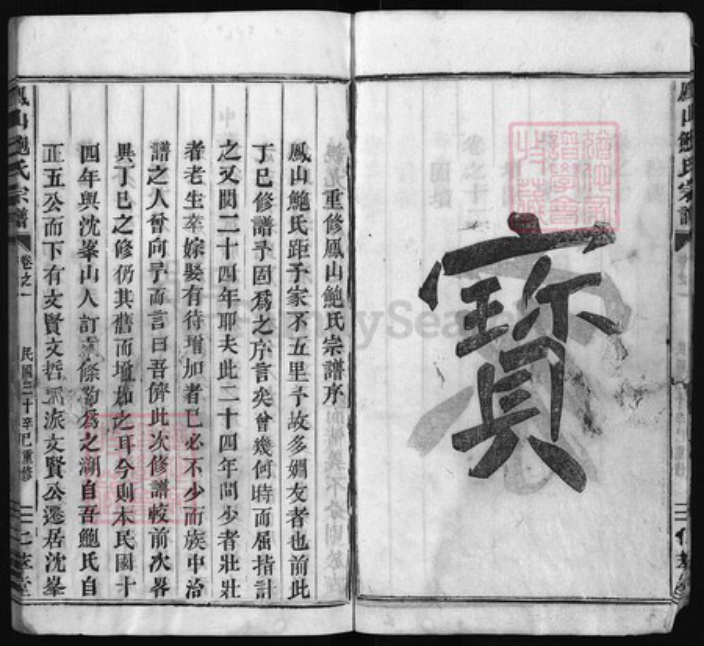 鳳山鮑氏宗譜
寶
重修鳳山鮑氏宗譜序
鳳山鮑氏距予家不五里予故多姻友者也前此
丁巳修譜予固爲之序言矣曾幾何時而屈指計
之又閱二十四年耶夫此二十四年間少者壯壯
者老生卒嫁娶有待增加者已必不少而族中治
譜之人曾向予而言曰吾儕此次修譜較前次畧
異丁巳之修仍其舊而增加之耳今則本民國十
四年與沈峯山人訂 條 爲之溯自吾鮑氏自
正五公而下有文賢文哲 派文賢公遷居沈峯
鳳山鮑氏宗譜
卷之一
民國三十辛巳重修